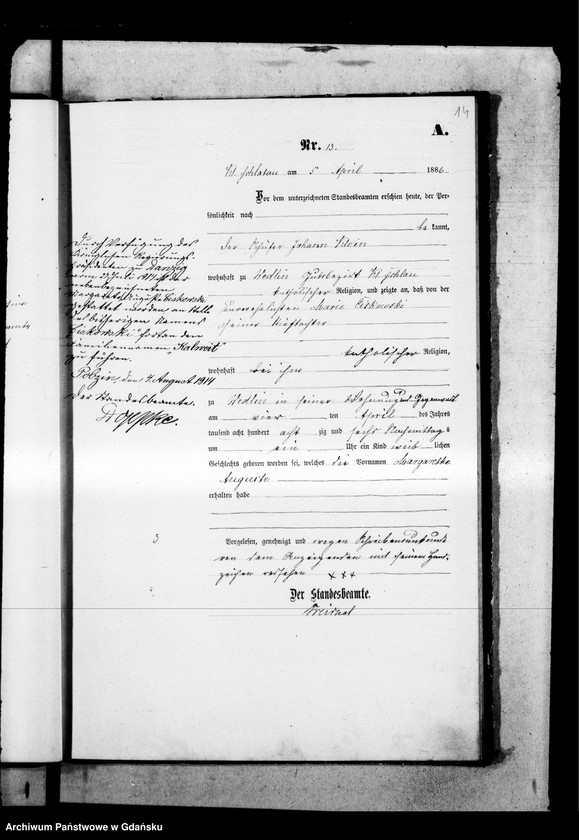 14
A.
Nr. 13.
Kl. Schlatau am 5 April 1886
Vor dem unterzeichneten Standesbeamten erschien heute, der Per-
sönlichkeit nach
be kannt,
der Johann Klein
wohnhaft zu Wedlin Gutsbezirk Kl. Schlatau
katholischer Religion, und zeigte an, daß von der
unverehelichten Marie Liskowski
seiner Stieftochter
katholischer Religion,
wohnhaft bei ihm
zu Wedlin in seiner Wohnung und Gegenwart
am vier ten April des Jahres
tausend acht hundert acht zig und sechs Nachmittag s
um ein Uhr ein Kind weib lichen
Geschlechts geboren worden sei, welches die Vornamen Margarethe
Auguste
erhalten habe
Vorgelesen, genehmigt und wegen Schreibensunkunde
von dem Anzeigenden mit seinem Hand-
zeichen versehen +++
Der Standesbeamte.
Durch Verfügung des
Königlichen Regierungs-
präsidenten zu Danzig
vom 22. Juli 1914 ist der
nebenbezeichneten
Margarethe Auguste Liskowski
gestattet worden an Stelle
des bisherigen Namens
"Liskowski" fortan den
Familiennamen "Kalweit"
zu führen.
den 4. August 1914
Der Standesbeamte.
3
Archiwum Państwowe w Gdańsku